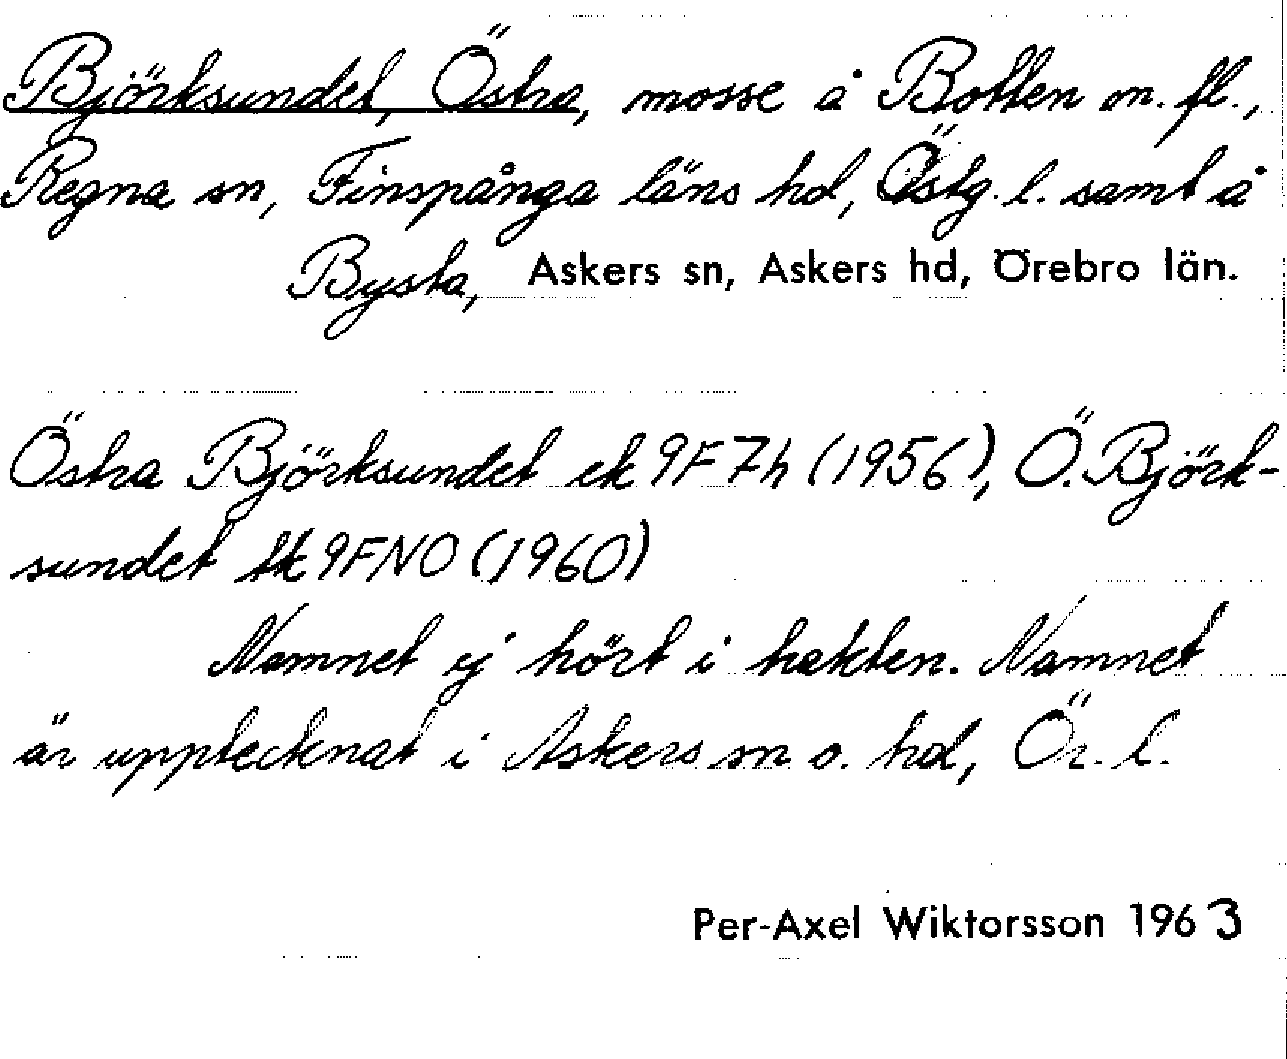 Björksundet, Östra, mosse å Botten m. fl.,
Regna sn, Finspånga läns hd, Östg. l. samt å
Bysta, Askers sn, Askers hd, Örebro län.
Östra Björksundet ek 9F7h (1956), Ö. Björk-
sundet tk 9FNO (1960)
Namnet ej hört i trakten. Namnet
är upptecknat i Askers sn o. hd, Ör. l.
Per-Axel Wiktorsson 1963